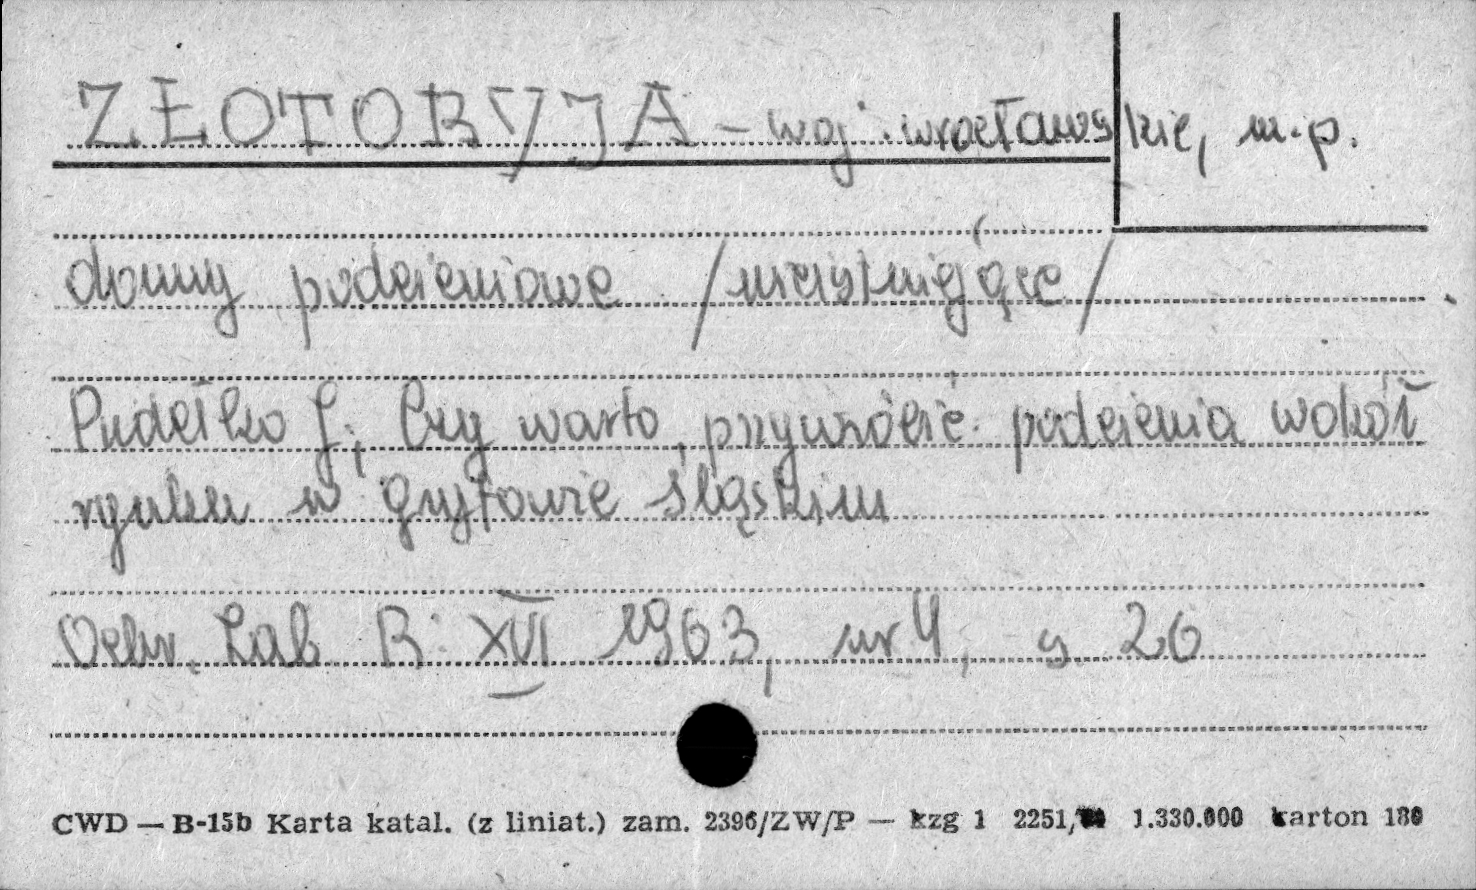 ZŁOTORYJA - woj. wrocławskie, m.p.
domy podcieniowe /nieistniejące/
Pudełko J.; Czy warto przywrócić podcienia wokół
rynku w Gryfowie Śląskim
Ochr. Zab. R: XVI 1963, nr 4, s. 26
CWD — B-15b Karta katal. (z liniat.) zam. 2396/ZW/P — kzg 1 2251/ 1.330.000 karton 180